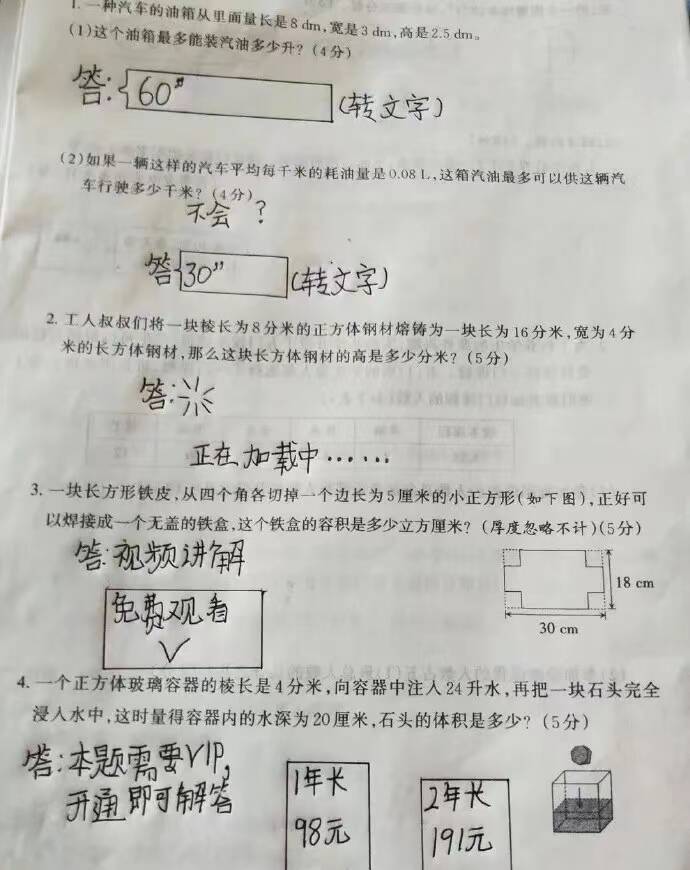 1. 一种汽车的油箱从里面量长是8 dm,宽是3 dm,高是2.5 dm。
(1)这个油箱最多能装汽油多少升？(4分)
答:{60" (转文字)
(2)如果一辆这样的汽车平均每千米的耗油量是0.08 L,这箱汽油最多可以供这辆汽
车行驶多少千米？(4分)
不会 ？
答{30" (转文字)
2. 工人叔叔们将一块棱长为8分米的正方体钢材熔铸为一块长为16分米,宽为4分
米的长方体钢材,那么这块长方体钢材的高是多少分米？(5分)
答:
正在加载中……
3. 一块长方形铁皮,从四个角各切掉一个边长为5厘米的小正方形(如下图),正好可
以焊接成一个无盖的铁盒,这个铁盒的容积是多少立方厘米？(厚度忽略不计)(5分)
答:视频讲解
免费观看
✓
18 cm
30 cm
4. 一个正方体玻璃容器的棱长是4分米,向容器中注入24升水,再把一块石头完全
浸入水中,这时量得容器内的水深为20厘米,石头的体积是多少？(5分)
答:本题需要VIP,
开通即可解答
1年长
98元
2年长
191元